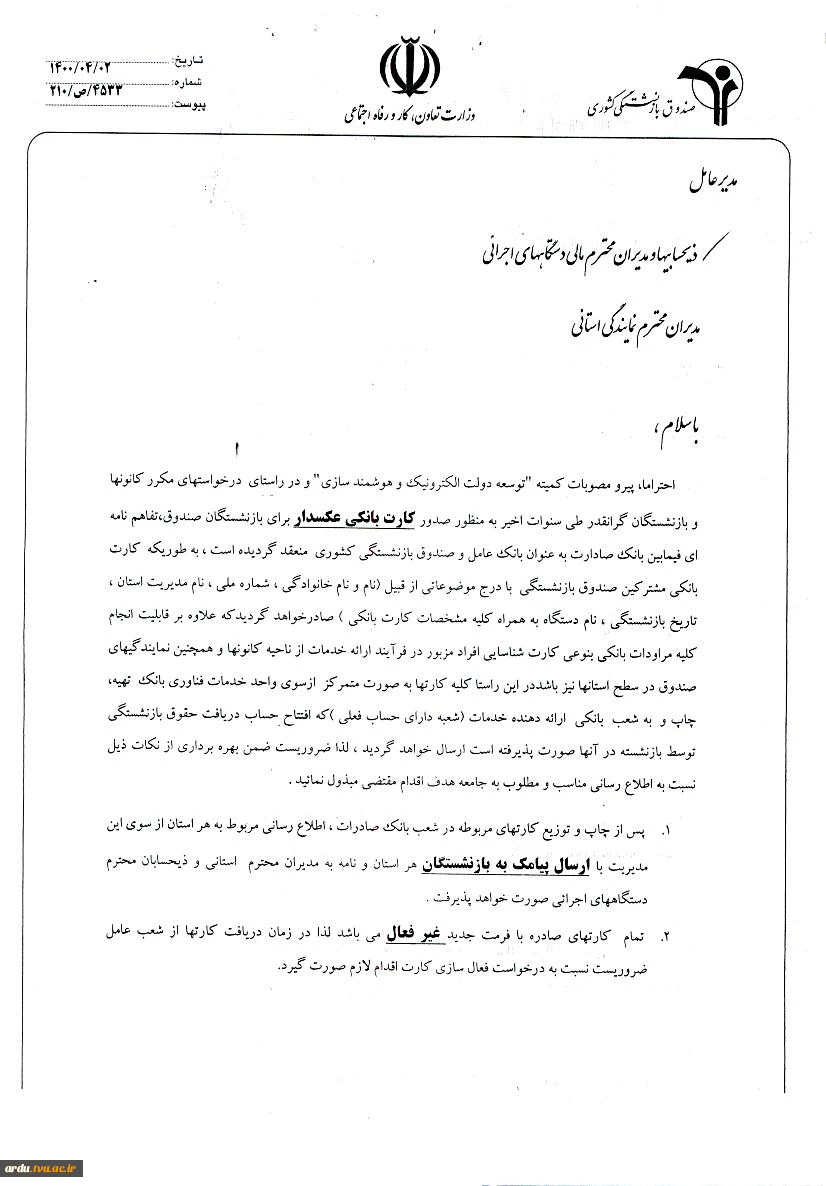 تاریخ: ۱۴۰۰/۰۴/۰۲
شماره: ۲۱۰/ص/۴۵۳۳
پیوست:
وزارت تعاون، کار و رفاه اجتماعی
صندوق بازنشستگی کشوری
مدیر عامل
ذیحسابیها و مدیران محترم مالی دستگاههای اجرائی
مدیران محترم نمایندگی استانی
باسلام ،
احتراما، پیرو مصوبات کمیته "توسعه دولت الکترونیک و هوشمند سازی" و در راستای درخواستهای مکرر کانونها
و بازنشستگان گرانقدر طی سنوات اخیر به منظور صدور کارت بانکی عکسدار برای بازنشستگان صندوق،تفاهم نامه
ای فیمابین بانک صادارت به عنوان بانک عامل و صندوق بازنشستگی کشوری منعقد گردیده است ، به طوریکه کارت
بانکی مشترکین صندوق بازنشستگی با درج موضوعاتی از قبیل (نام و نام خانوادگی ، شماره ملی ، نام مدیریت استان ،
تاریخ بازنشستگی ، نام دستگاه به همراه کلیه مشخصات کارت بانکی ) صادرخواهد گردیدکه علاوه بر قابلیت انجام
کلیه مراودات بانکی بنوعی کارت شناسایی افراد مزبور در فرآیند ارائه خدمات از ناحیه کانونها و همچنین نمایندگیهای
صندوق در سطح استانها نیز باشددر این راستا کلیه کارتها به صورت متمرکز ازسوی واحد خدمات فناوری بانک تهیه،
چاپ و به شعب بانکی ارائه دهنده خدمات (شعبه دارای حساب فعلی )که افتتاح حساب دریافت حقوق بازنشستگی
توسط بازنشسته در آنها صورت پذیرفته است ارسال خواهد گردید ، لذا ضروریست ضمن بهره برداری از نکات ذیل
نسبت به اطلاع رسانی مناسب و مطلوب به جامعه هدف اقدام مقتضی مبذول نمائید .
۱. پس از چاپ و توزیع کارتهای مربوطه در شعب بانک صادرات ، اطلاع رسانی مربوط به هر استان از سوی این
مدیریت با ارسال پیامک به بازنشستگان هر استان و نامه به مدیران محترم استانی و ذیحسابان محترم
دستگاههای اجرائی صورت خواهد پذیرفت .
۲. تمام کارتهای صادره با فرمت جدید غیر فعال می باشد لذا در زمان دریافت کارتها از شعب عامل
ضروریست نسبت به درخواست فعال سازی کارت اقدام لازم صورت گیرد.
ardu.tvu.ac.ir